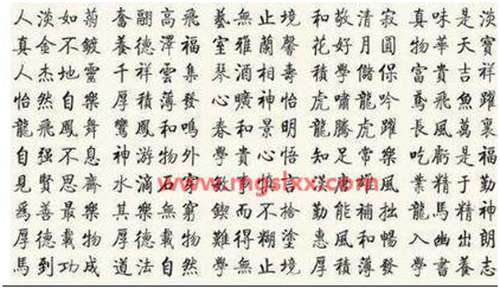 人淡如菊 奮翮高飛 藝無止境 和敬清寂 真味是淡
真金不鍍 養德澤福 室雅蘭馨 花好月圓 物華天寶
人杰地靈 千祥雲集 琴酒相壽 積學儲保 富貴吉祥
怡然自樂 厚積薄發 心曠神怡 虎嘯龍吟 鳶飛魚躍
龍飛鳳舞 鸞鳳和鳴 春和景明 龍騰虎躍 長風萬裏
自强不息 神游物外 學貴心悟 知足常樂 吃虧是福
見賢思齋 水滴 業精于勤
www.mgslxx.com
爲善最樂 其樂無窮 鍥而不捨 勤能補拙 龍馬精神
厚德載物 厚德載物 難得糊塗 惠風和暢 入幽出朗
馬到功成 道法自然 學無止境 厚積薄發 學書養志